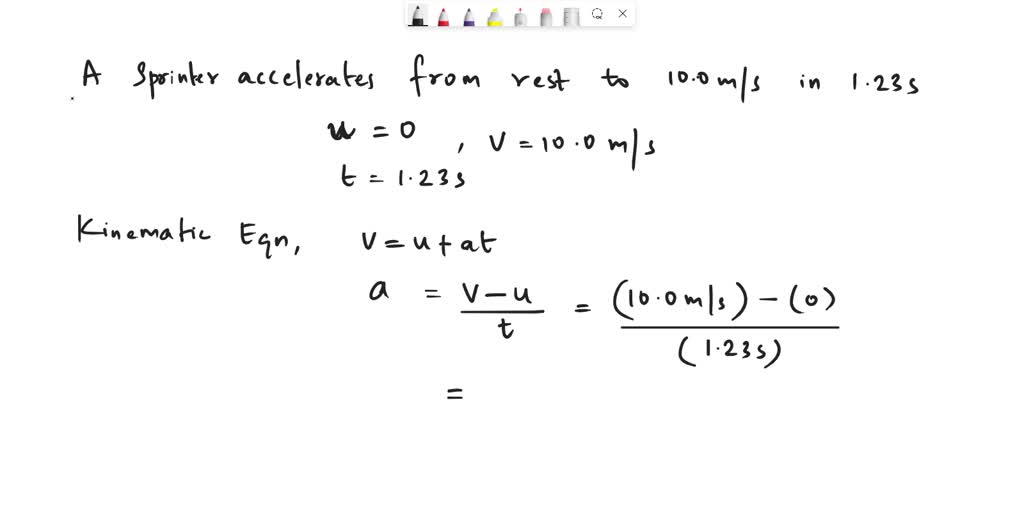 A Sprinter accelerates from rest to 10.0 m/s in 1.23s
u = 0 , V = 10.0 m/s
t = 1.23s
Kinematic Eqn, V = u + at
a = V - u / t = (10.0 m/s) - (0) / (1.23s)
=